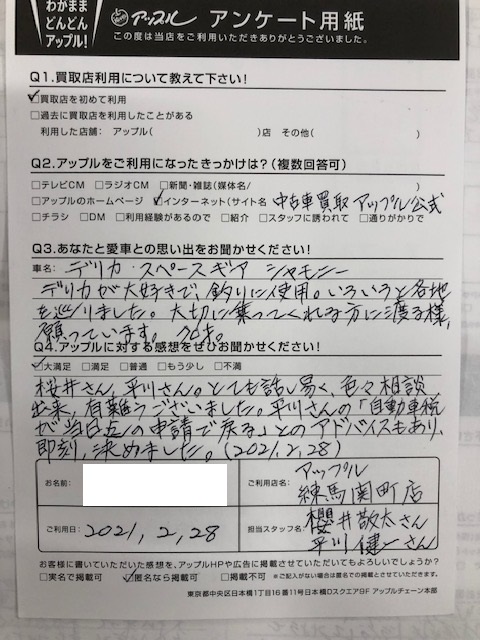 わがまま
どんどん
アップル!
アップル アンケート用紙
この度は当店をご利用いただきありがとうございました。
Q1.買取店利用について教えて下さい!
☑買取店を初めて利用
□過去に買取店を利用したことがある
利用した店舗: アップル( )店 その他( )
Q2.アップルをご利用になったきっかけは?(複数回答可)
□テレビCM □ラジオCM □新聞・雑誌(媒体名/
□アップルのホームページ ☑インターネット(サイト名 中古車買取 アップル公式
□チラシ □DM □利用経験があるので □紹介 □スタッフに誘われて □通りがかりで
Q3.あなたと愛車との思い出をお聞かせください!
車名: デリカ・スペースギア シャモニー
デリカが大好きで、釣りに使用。いろいろと各地
を巡りました。大切に乗ってくれる方に渡る様、
願っています。
Q4.アップルに対する感想をぜひお聞かせください!
☑大満足 □満足 □普通 □もう少し □不満
桜井さん、平川さん。とても話し易く、色々相談
出来、有難うございました。平川さんの「自動車税
が当日迄の申請で戻る」とのアドバイスもあり、
即刻、決めました。(2021,2,28)
お名前
ご利用店名: アップル
練馬関町店
ご利用日: 2021,2,28
担当スタッフ名: 櫻井敬太さん
平川健一さん
お客様に書いていただいた感想を、アップルHPや広告に掲載させていただいてもよろしいでしょうか?
□実名で掲載可 ☑匿名なら掲載可 □掲載不可 ※ご記入がない場合は匿名での掲載とさせていただきます。
東京都中央区日本橋1丁目16番11号日本橋Dスクエア9F アップルチェーン本部